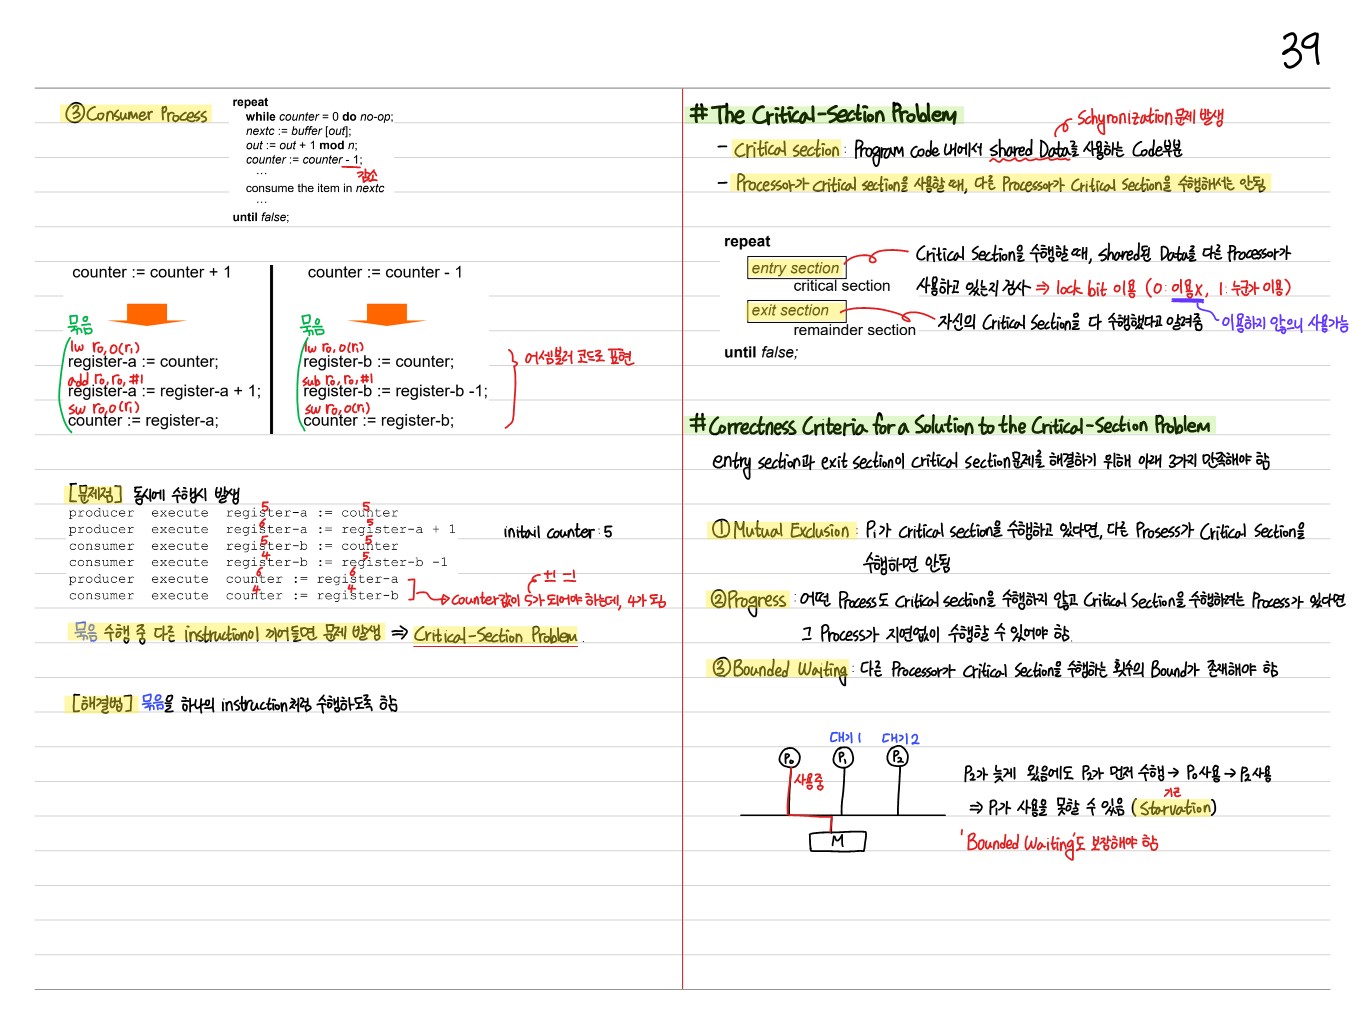 39
③ Consumer Process
repeat
while counter = 0 do no-op;
nextc := buffer [out];
out := out + 1 mod n;
counter := counter - 1;
감소
...
consume the item in nextc
...
until false;
counter := counter + 1
묶음
lw r0, 0(r1)
register-a := counter;
add r0, r0, #1
register-a := register-a + 1;
sw r0, 0(r1)
counter := register-a;
counter := counter - 1
묶음
lw r0, 0(r1)
register-b := counter;
sub r0, r0, #1
register-b := register-b -1;
sw r0, 0(r1)
counter := register-b;
어셈블러 코드로 표현
[문제점] 동시에 수행시 발생
5 5
producer execute register-a := counter
6 5
producer execute register-a := register-a + 1
initail counter : 5
5 5
consumer execute register-b := counter
4 5
consumer execute register-b := register-b -1
6 6
producer execute counter := register-a
4 4
consumer execute counter := register-b
+1 -1
counter값이 5가 되어야 하는데, 4가 됨
묶음 수행 중 다른 instruction이 끼어들면 문제 발생 ⇒ Critical-Section Problem.
[해결법] 묶음을 하나의 instruction처럼 수행하도록 함
# The Critical-Section Problem
Schyronization 문제 발생
- Critical section : Program code 내에서 shared Data를 사용하는 Code부분
- Processor가 critical section을 사용할 때, 다른 Processor가 Critical Section을 수행해서는 안됨
repeat
entry section
critical section
exit section
remainder section
until false;
Critical Section을 수행할 때, shared된 Data를 다른 Processor가
사용하고 있는지 검사 ⇒ lock bit 이용 (0: 이용x, 1: 누군가 이용)
자신의 Critical Section을 다 수행했다고 알려줌
이용하지 않으니 사용가능
# Correctness Criteria for a Solution to the Critical-Section Problem
entry section과 exit section이 critical section문제를 해결하기 위해 아래 3가지 만족해야 함
① Mutual Exclusion : Pi가 Critical section을 수행하고 있다면, 다른 Prosess가 Critical Section을
수행하면 안됨
② Progress : 어떤 Process도 Critical section을 수행하지 않고 Critical Section을 수행하려는 Process가 있다면
그 Process가 지연없이 수행할 수 있어야 함.
③ Bounded Waiting : 다른 Processor가 Critical Section을 수행하는 횟수의 Bound가 존재해야 함
대기1 대기2
P0 P1 P2
사용중
M
P2가 늦게 왔음에도 P2가 먼저 수행 → P0사용 → P2사용
⇒ P1가 사용을 못할 수 있음 (Starvation)
기근
'Bounded Waiting'도 보장해야 함